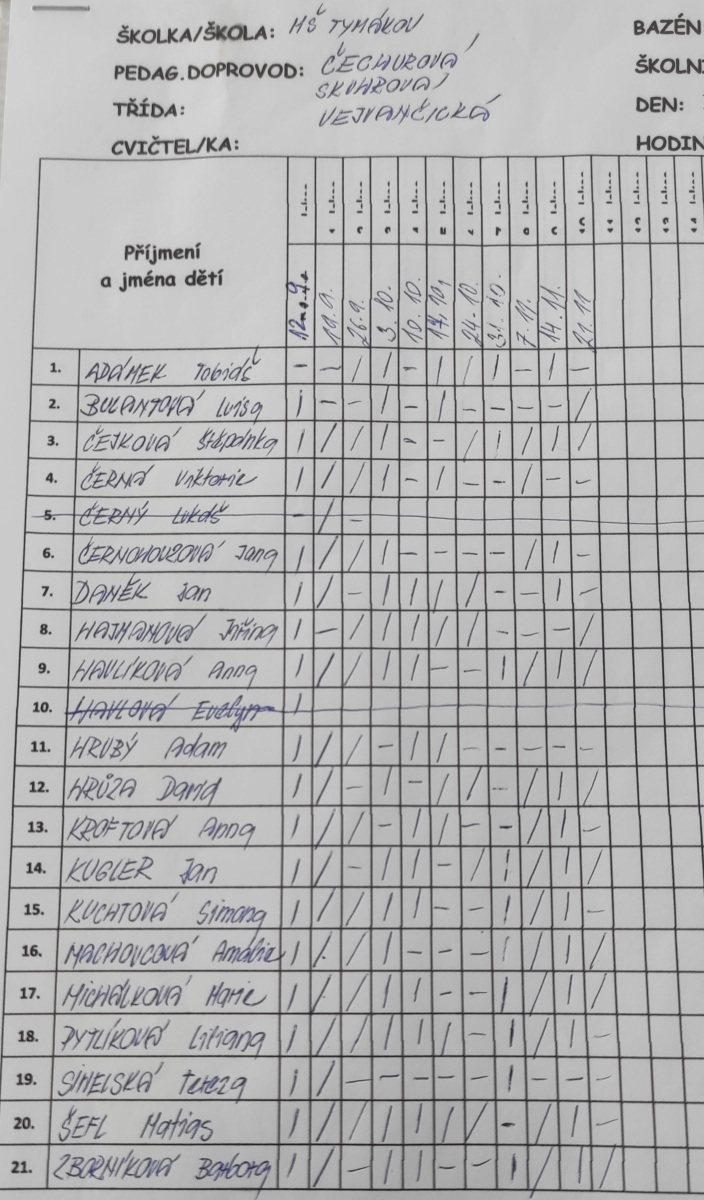 ŠKOLKA/ŠKOLA: MŠ TYMÁKOV BAZÉN
PEDAG.DOPROVOD: ČECHUROVÁ, ŠKOLNÍ
SKUHROVÁ,
TŘÍDA: VEJVANČICKÁ DEN:
CVIČTEL/KA: HODIN
Příjmení
a jména dětí
12. 9. 19.9. 26.9. 3.10. 10.10. 17.10. 24.10. 31.10. 7.11. 14.11. 21.11
1. ADÁMEK Tobiáš - - / | - | / | - | -
2. BULANTOVÁ Luisa | - - | - | - - - - /
3. ČEJKOVÁ Štěpánka | / / | - - / | / | /
4. ČERNÁ Viktorie | / / | - | - - / - -
5. ČERNÝ Lukáš - / -
6. ČERNOHOUZOVÁ Jana | / / | - - - - / | -
7. DANĚK Jan | / - | | | / - - | -
8. HAJMANOVÁ Jiřina | - / | | / / - - - /
9. HAVLÍKOVÁ Anna | / / | | - - | / | /
10. HAVLOVÁ Evelyn |
11. HRUBÝ Adam | / / - | | - - - - -
12. HRŮZA David | / - | - / / - / | /
13. KROFTOVÁ Anna | / / - | | - - / | -
14. KUGLER Jan | / - | | - / | / | /
15. KUCHTOVÁ Simona | / / | | - - | / | -
16. MACHOVCOVÁ Amálie | / / | - - - | / | /
17. MICHÁLKOVÁ Marie | / / | | - - | / | /
18. PYTLÍKOVÁ Liliana | / / | | / - | / | -
19. SIHELSKÁ Tereza | / - - - - - | - - -
20. ŠEFL Matias | / / | | / / - / | -
21. ZBORNÍKOVÁ Barbora | / - | | - - | / | /